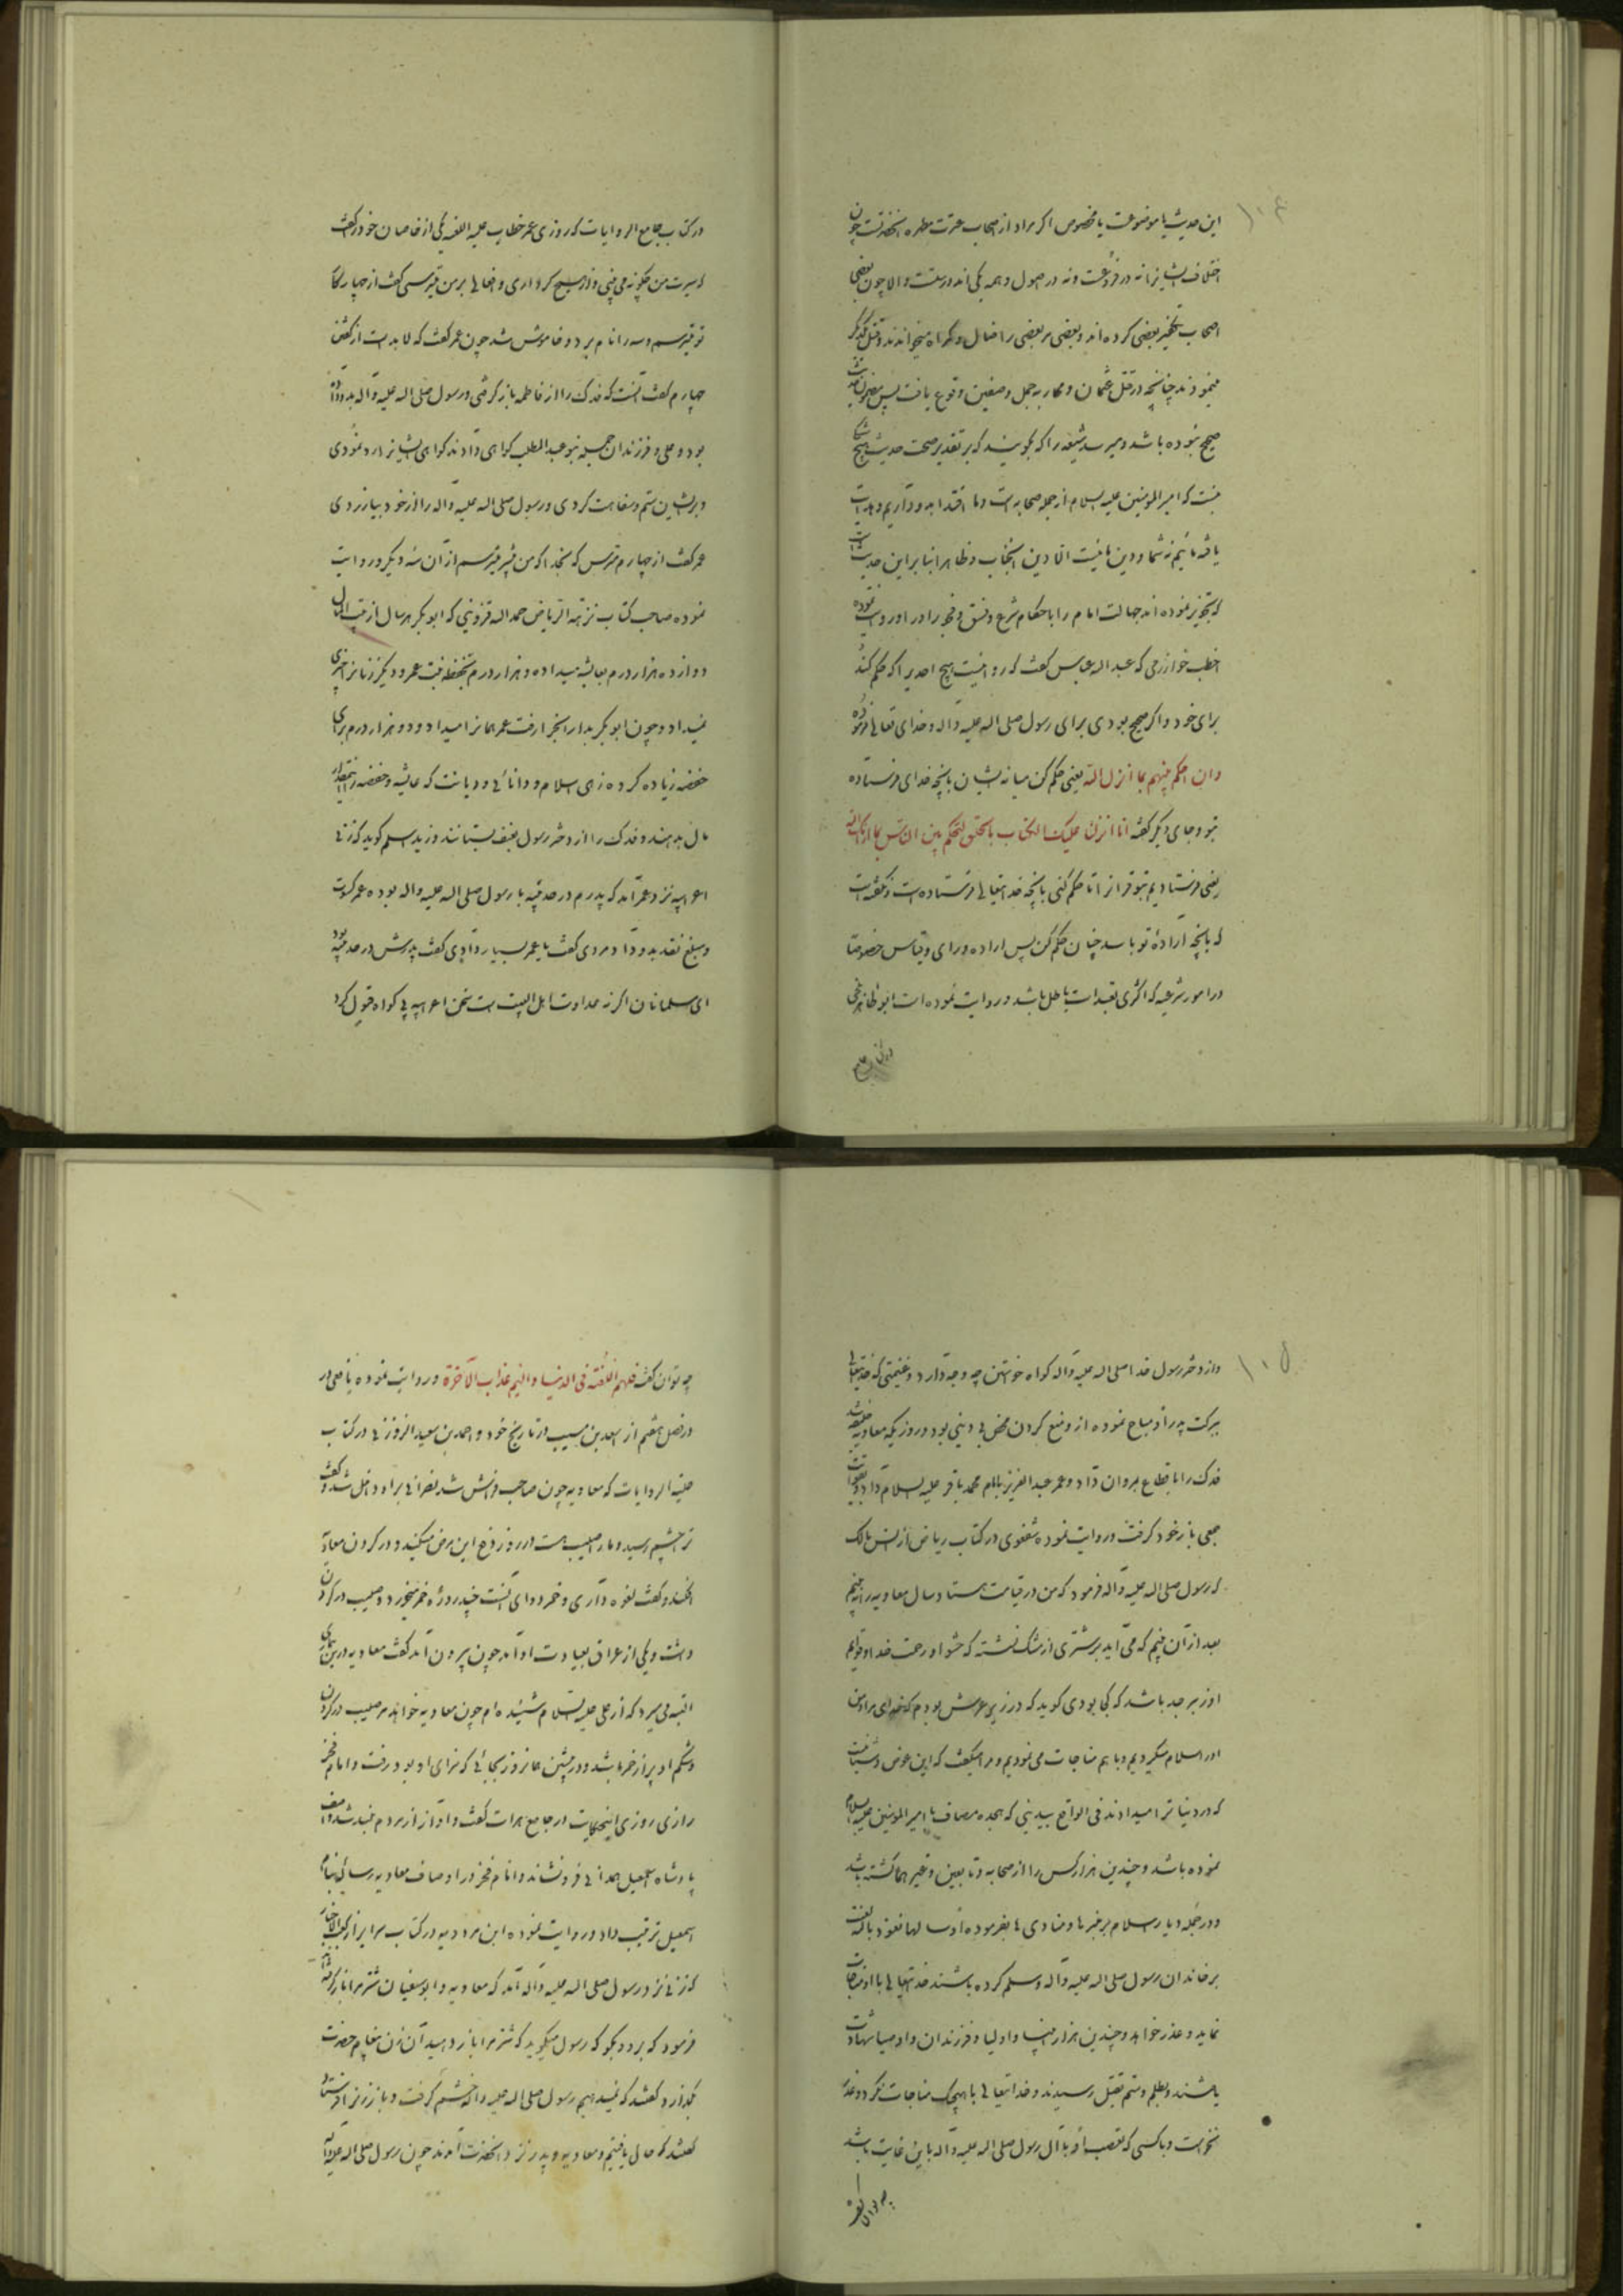 ۱۰۴
این حدیث یا موضوعت یا مخصوص اگر مراد از اصحاب عترت مطهره آنحضرتست چون
اختلاف ایشانرا نه در فروعست و نه در اصول و همه یکی اند در ملت والا چون بعضی
اصحاب تکفیر بعضی کرده اند و بعضی مر بعضی را ضال و گمراه میخوانده اند و قتل یکدیگر
مینمودند چنانچه در قتل عثمان و محاربه جمل و صفین وقوع یافت پس مضمون حدیث
صحیح نبوده باشد و میرسد شیعه را که بگویند که بر تقدیر صحت حدیث هیچ شک
نیست که امیرالمومنین علیه السلام از جمله صحابه است و ما اقتدا بدو داریم و هدایت
یافته مائیم نه شما و دین ما نیست الا دین آنجناب و ظاهرا بنا بر این حدیث است
که تجویز نموده اند جهالت امام را باحکام شرع و فسق و فجور را در او روایت نموده
اخطب خوارزمی که عبدالله عباس گفت که روا نیست هیچ احدیرا که حکم کند
برای خود و اگر صحیح بودی برای رسول صلی الله علیه وآله و خدای تعالی فرموده
وان احکم بینهم بما انزل الله یعنی حکم کن میانه ایشان بآنچه خدای فرستاده
بتو و جای دیگر گفته انا انزلنا علیک الکتاب بالحق لتحکم بین الناس بما اراک الله
یعنی فرستادیم بتو قرانرا تا حکم کنی بآنچه خدایتعالی فرستاده است و نگفته است
که بآنچه اراده تو باشد چنان حکم کن پس اراده و رای و قیاس خصوصا
در امور شرعیه که اکثری تعبدات باطل باشد و روایت نموده است ابو طاهر
در کتاب جامع
در کتاب جامع الروایات که روزی عمر خطاب علیه اللعنه یکی از خاصان خود را گفت
که سیرت من چگونه می بینی و از هیچ کرداری و افعالی بر من میترسی گفت از چهار کار
تو میترسم و سه را نام برد و خاموش شد چون عمر گفت که لابد است از گفتن
چهارم گفت آنست که فدک را از فاطمه باز گرفتی و رسول صلی الله علیه وآله بدو داده
بود و علی و فرزندان و جمیله بنو عبدالمطلب گواهی دادند گواهی ایشانرا رد نمودی
و بر ایشان ستم و سفاهت کردی و رسول صلی الله علیه وآله را از خود بیازردی
عمر گفت از چهارم مترس که بخدا که من بیشتر میترسم از آن سه دیگر و روایت
نموده صاحب کتاب نزهة الریاض حمدالله قزوینی که ابوبکر هر سال از بیت المال
دوازده هزار درم بعایشه میداد و هزار درم بحفصه بنت عمر و دیگر زنانرا چیزی
نمیداد و چون ابوبکر بدار البوار رفت عمر همانرا میداد و دو هزار درم برای
حفصه زیاده کرد زهی اسلام و دانائی و دیانت که عایشه و حفصه را اینمقدار
مال بدهند و فدک را از دختر رسول بعنف بستانند و زید اسلم گوید که زنی
اعرابیه نزد عمر آمد که پدرم در حدیبیه با رسول صلی الله علیه واله بوده عمر کسوت
و مبلغ نقد بدو داد مردی گفت یا عمر بسیار دادی گفت پدرش در حدیبیه بود
ای مسلمانان اگر نه عداوت اهل البیت است سخن اعرابیه بی گواه قبول کرد
۱۰۵
و از دختر رسول خدا صلی الله علیه وآله گواه خواستن چه وجه دارد و غنیمتی که خدایتعالی
ببرکت پدر او مباح نموده از او منع کردن محض بی دینی بود و روزیکه معاویه خلیفه شد
فدک را باقطاع بمروان داد و عمر عبدالعزیز بامام محمد باقر علیه السلام داد و بتغلب
جمعی باز خود گرفتند و روایت نموده شفوی در کتاب ریاض از انس مالک
که رسول صلی الله علیه وآله فرمود که من در قیامت هشتاد سال معاویه را نه بینم
بعد از آن بینم که می آید بر شتری از مشک نشسته که حشو او رحمت خدا و قوایم
او زبرجد باشد که کجا بودی گوید که در زیر عرش بودم که خدای مرا و من
او را سلام میکردیم و با هم مناجات می نمودیم و مرا میگفت که این عوض دشنامست
که در دنیا ترا میدادند فی الواقع بیدینی که هجده مصاف با امیرالمومنین علیه السلام
نموده باشد و چندین هزار کس را از صحابه و تابعین و غیر هما کشته باشد
و در جمله دیار اسلام بر منبرها و منادی ها بفرموده او سالها نعوذ بالله لعنت
بر خاندان رسول صلی الله علیه وآله وسلم کرده باشند خدایتعالی با او مناجات
نماید و عذر خواهد و چندین هزار انبیا و اولیا و فرزندان و اوصیا شهادت
یافتند و بظلم و ستم بقتل رسیدند و خدایتعالی با هیچیک مناجات نکرد و عذر
نخواست و با کسی که تعصب او با آل رسول صلی الله علیه وآله باین غایت باشد
چه توان گفت
چه توان گفت فلهم اللعنة فی الدنیا و الیم عذاب الآخرة و روایت نموده یافعی در
در فصل هشتم از سعد بن مسیب در تاریخ خود و احمد بن سعید الزوزنی در کتاب
حلیة الروایات که معاویه چون صاحب فراش شد نصرانی براو داخل شد و گفت
ترا چشم رسید و ما را صلیبی است در روز دفع این مرض میکنید و در گردن معاویه
افکند و گفت لغوه داری و خمر دوای آنست چند روزه خمر میخورد و صلیب در گردن
داشت و یکی از عراق بعیادت او آمد چون بیرون آمد گفت معاویه در این بیماری
البته می میرد که از علی علیه السلام شنیده ام چون معاویه خواهد مرد صلیب در گردن
و شکم او پر از خمر باشد و در پیشین همانروز بجائی که سزای او بود رفت و امام فخر
رازی روزی اینحکایت در جامع هرات گفت و آواز از مردم بلند شد و
پادشاه اسمعیل همدانی فرو نشاند و امام فخر در اوصاف معاویه رساله بنام
اسمعیل ترتیب داد و روایت نموده ابن مردویه در کتاب سرایر از کعب الاحبار
که زنی نزد رسول صلی الله علیه وآله آمد که معاویه و ابوسفیان شتر مرا باز گرفته اند
فرمود که برو و بگو که رسول میگوید که شتر مرا باز دهید آن زن پیغام حضرت
بگذارد گفتند که نمیدهیم رسول صلی الله علیه واله خشم گرفت و باز زنرا فرستاد
گفتند که حال یافتیم و معاویه و پدر نزد آنحضرت آمدند چون رسول صلی الله علیه وآله